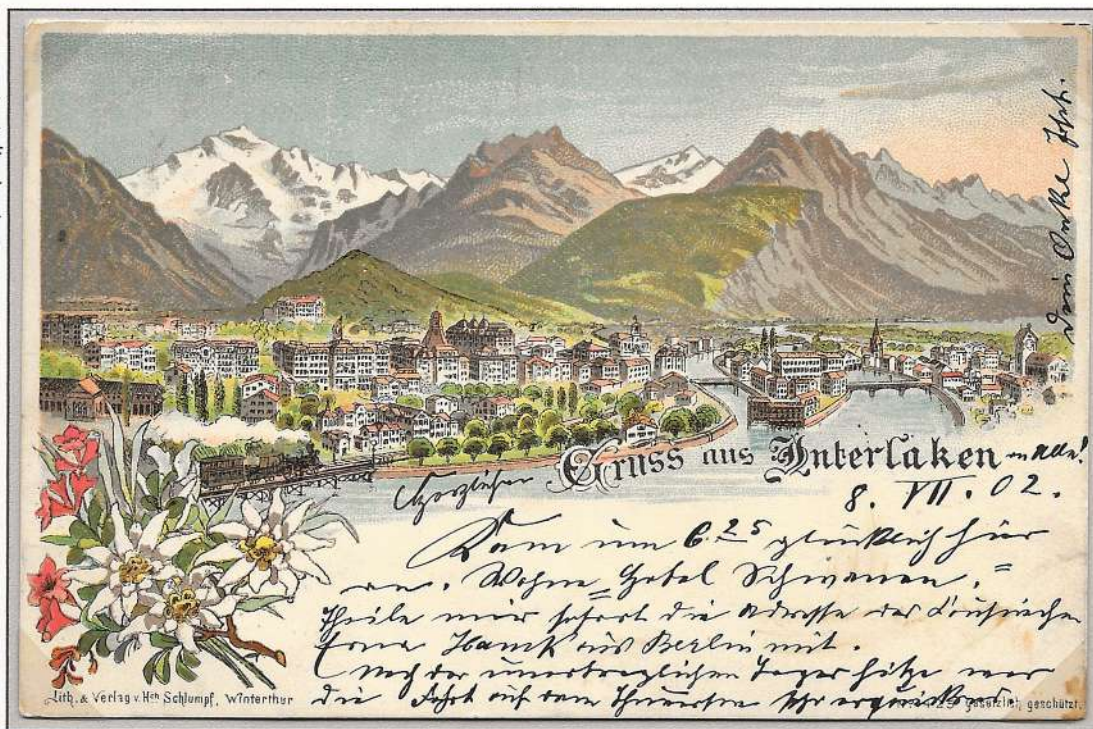 Herzlicher Gruss aus Interlaken an Alle!
8. VII. 02.
Kam um 6.25 glücklich hier
an. Wohne Hotel Schwanen. =
Theile mir sofort die Adresse der
Erna aus Berlin mit.
Nach der unerträglichen Tageshitze war
die Fahrt auf dem Thunersee sehr erquickend.
Dein Onkel
Lith. & Verlag v. Hch Schlumpf, Winterthur
gesetzlich geschützt.